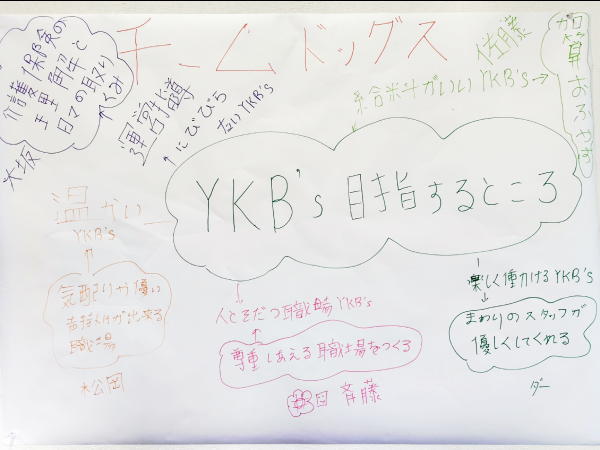 チームドッグス
介護保険の
理解と
日々の取り
くみ
大坂
運営指導
にびびら
ないYKB's
佐藤
給料がいいYKB's→
加算をふやす
YKB's 目指すところ
温かい
YKB's
気配りや優しい
声掛けが出来る
職場
松岡
人とそだつ職場YKB's
尊重しあえる職場をつくる
田 斉藤
楽しく働けるYKB's
まわりのスタッフが
優しくしてくれる
ダー